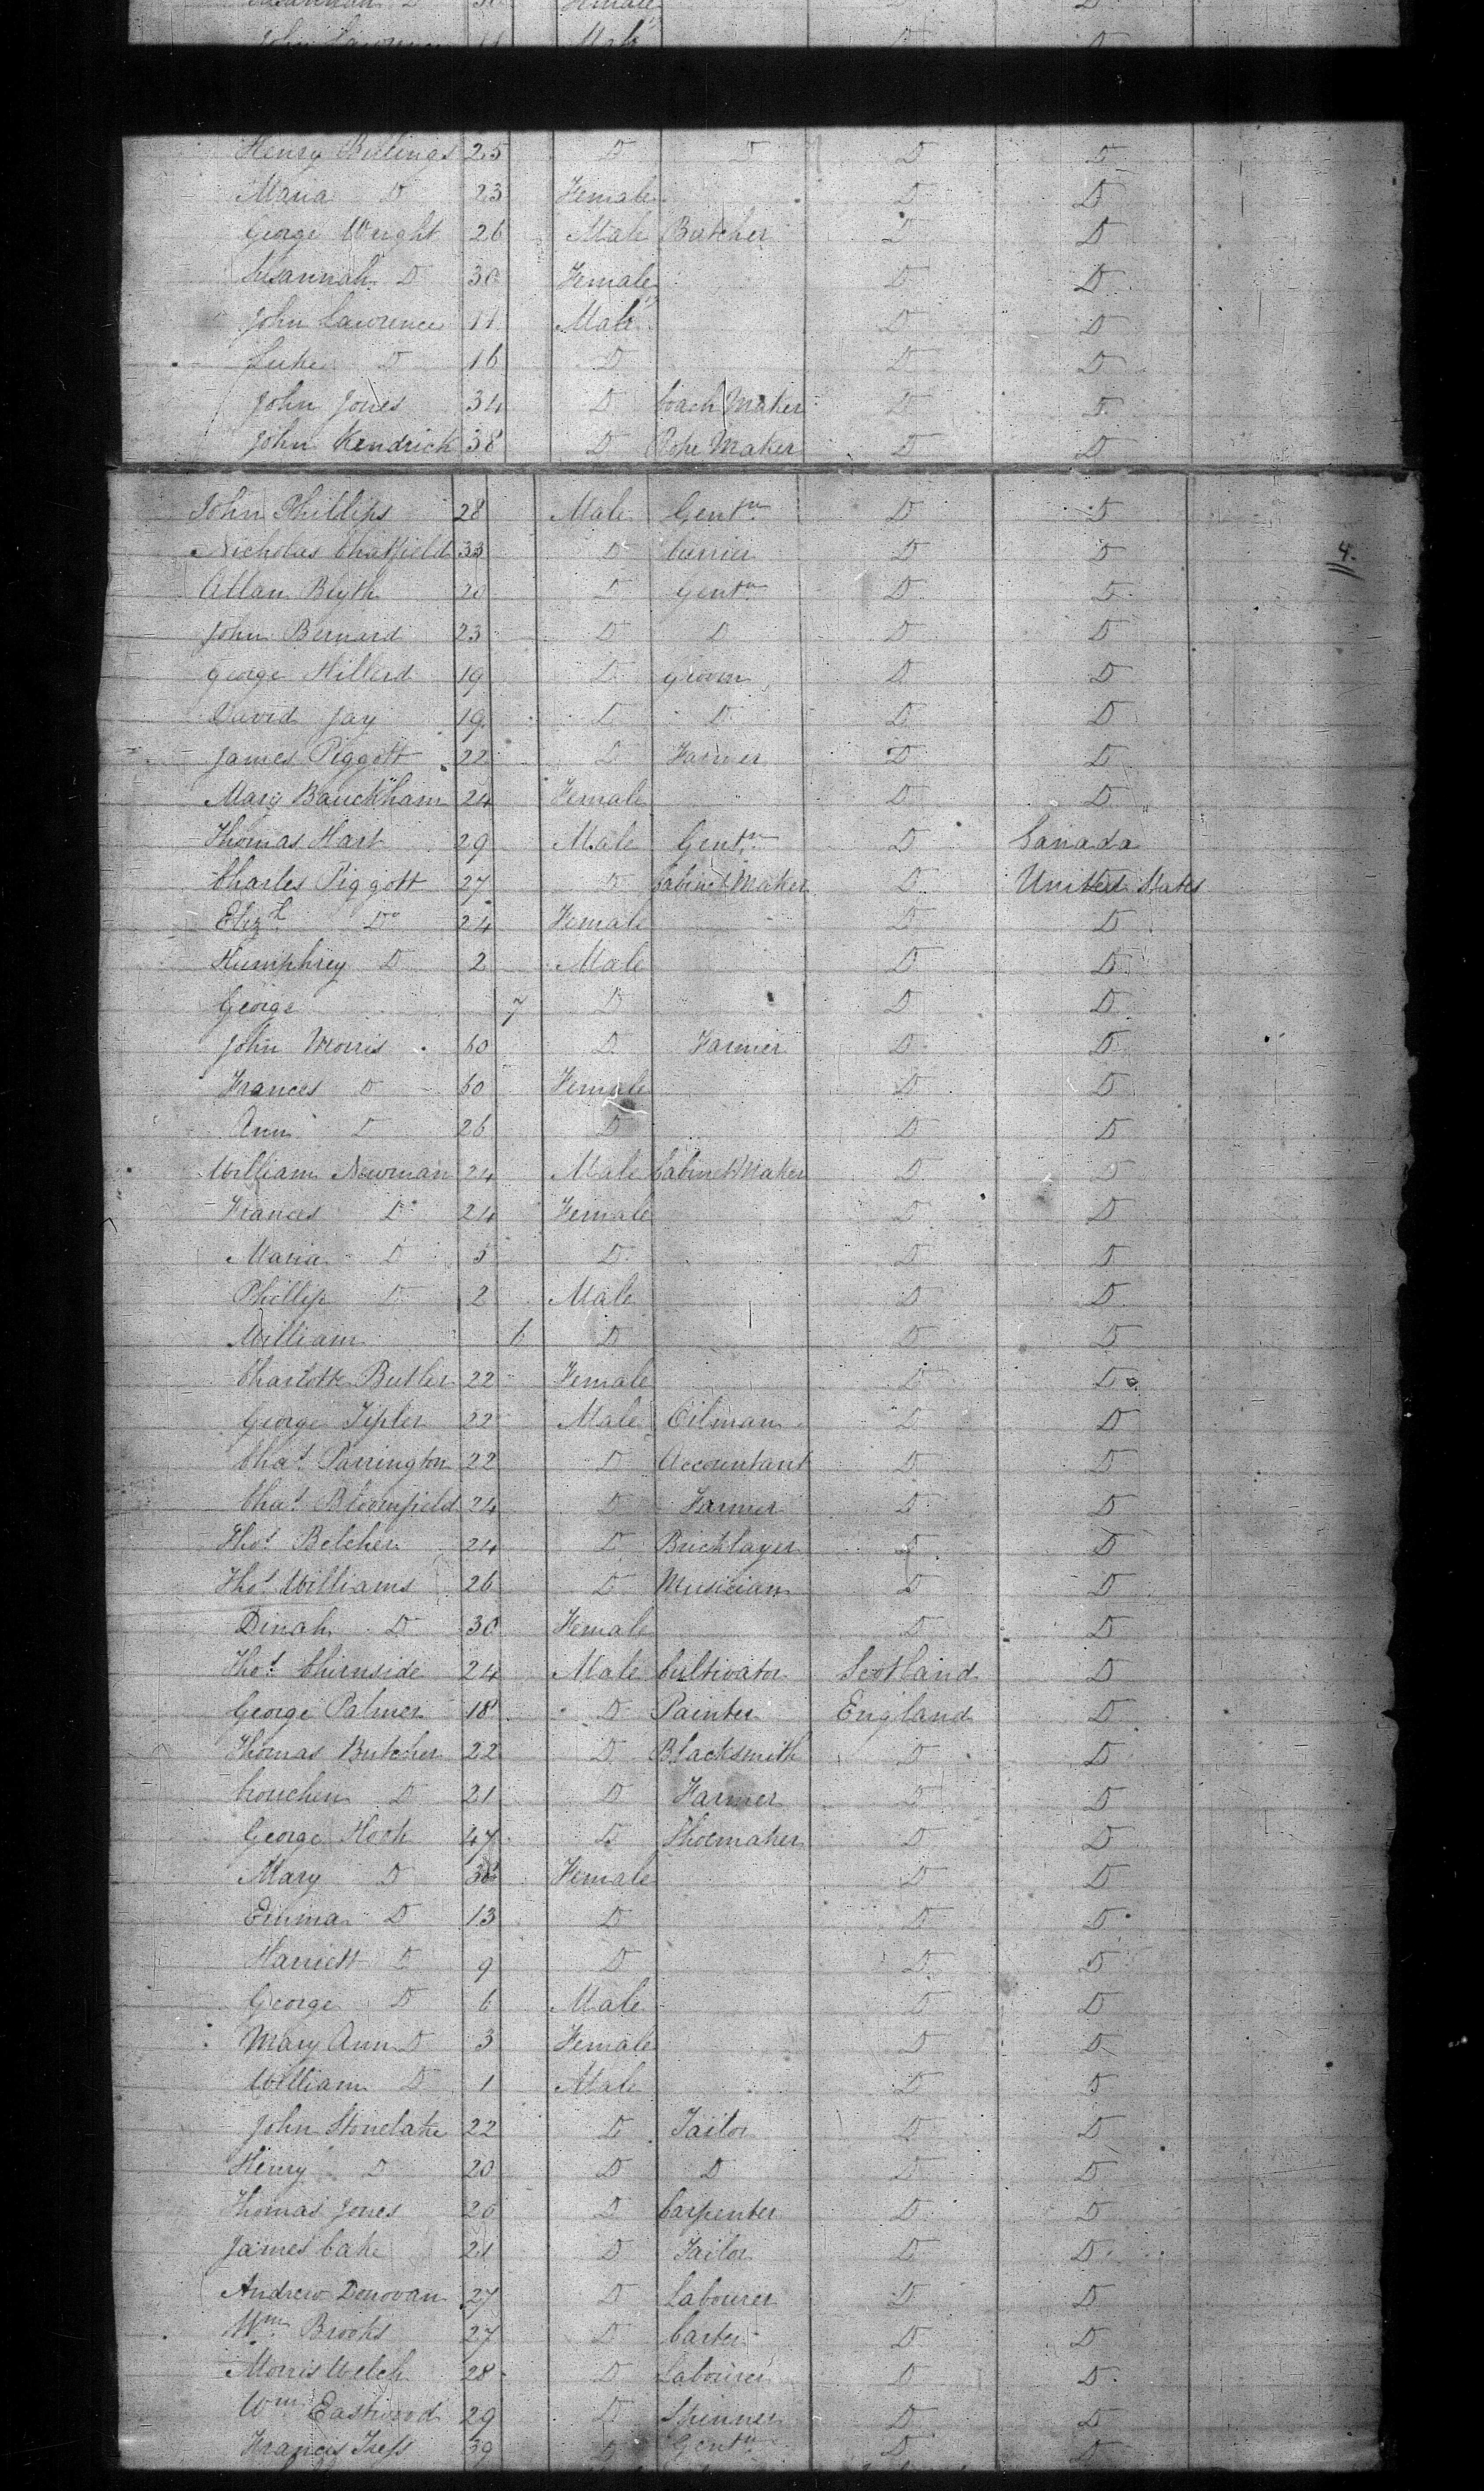 Susannah D 30 Female D D
John Lawrence 11 Male D D
Henry Billings 25 D D D D
Maria D 23 Female D D
George Wright 26 Male Butcher D D
Susannah D 30 Female D D
John Lawrence 11 Male D D
Luke D 16 D D D
John Jones 34 D Coach Maker D D
John Kendrick 38 D Rope Maker D D
John Phillips 28 Male Gentn D D
Nicholas Chatfield 33 D Currier D D
4.
Allan Blyth 20 D Gentn D D
John Bernard 23 D D D D
George Hillerd 19 D Groom D D
David Jay 19 D D D D
James Piggott 22 D Farmer D D
Mary Bauckham 24 Female D D
Thomas Hart 29 Male Gentn D Canada
Charles Piggott 27 D Cabinet Maker D United States
Elizth Do 24 Female D D
Humphrey D 2 Male D D
George 7 D D D
John Morris 60 D Farmer D D
Frances D 60 Female D D
Ann D 26 D D D
William Newman 24 Male Cabinet Maker D D
Frances D 24 Female D D
Maria D 5 D D D
Phillip D 2 Male D D
William 6 D D D
Charlotte Butler 22 Female D D
George Tipler 22 Male Oilman D D
Chas Parrington 22 D Accountant D D
Chas Bloomfield 24 D Farmer D D
Thos Belcher 24 D Bricklayer D D
Thos Williams 26 D Musician D D
Dinah D 30 Female D D
Thos Chirnside 24 Male Cultivator Scotland D
George Palmer 18 D Painter England D
Thomas Butcher 22 D Blacksmith D D
Crouchen D 21 D Farmer D D
George Hook 47 D Shoemaker D D
Mary D 38 Female D D
Emma D 13 D D D
Harriett D 9 D D D
George D 6 Male D D
Mary Ann D 3 Female D D
William D 1 Male D D
John Stonelake 22 D Tailor D D
Henry D 20 D D D D
Thomas Jones 20 D Carpenter D D
James Cake 21 D Tailor D D
Andrew Donovan 27 D Labourer D D
Wm Brooks 27 D Carter D D
Morris Welch 28 D Labourer D D
Wm Eastwood 29 D Spinner D D
Francis Tress 39 D Gentn D D